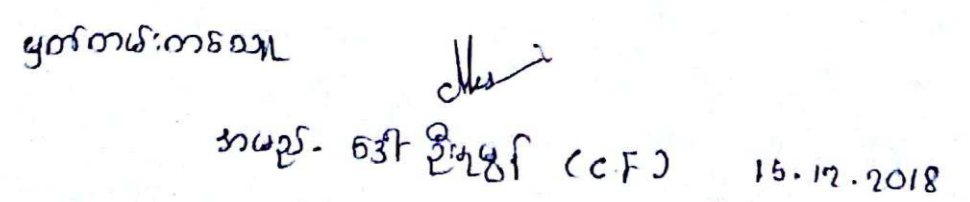 မှတ်တမ်းတင်သူ
အမည်- ဒေါ် ဦးရွှန် (C.F) 15.12.2018